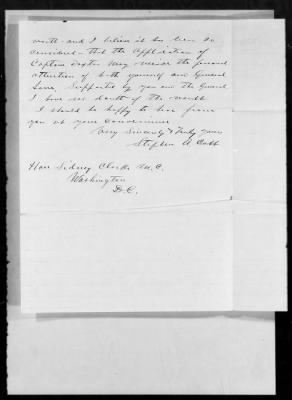 worth - and I believe it has been so
considered - that the Application of
Captain may receive the personal
attention of both yourself and General
Lane, Supported by you and the General
I have no doubt of the result
I should be happy to hear from
you at your convenience
Very Sincerely & Truly yours
Stephen A. Cobb
Hon Sidney Clarke M.C.
Washington
D.C.